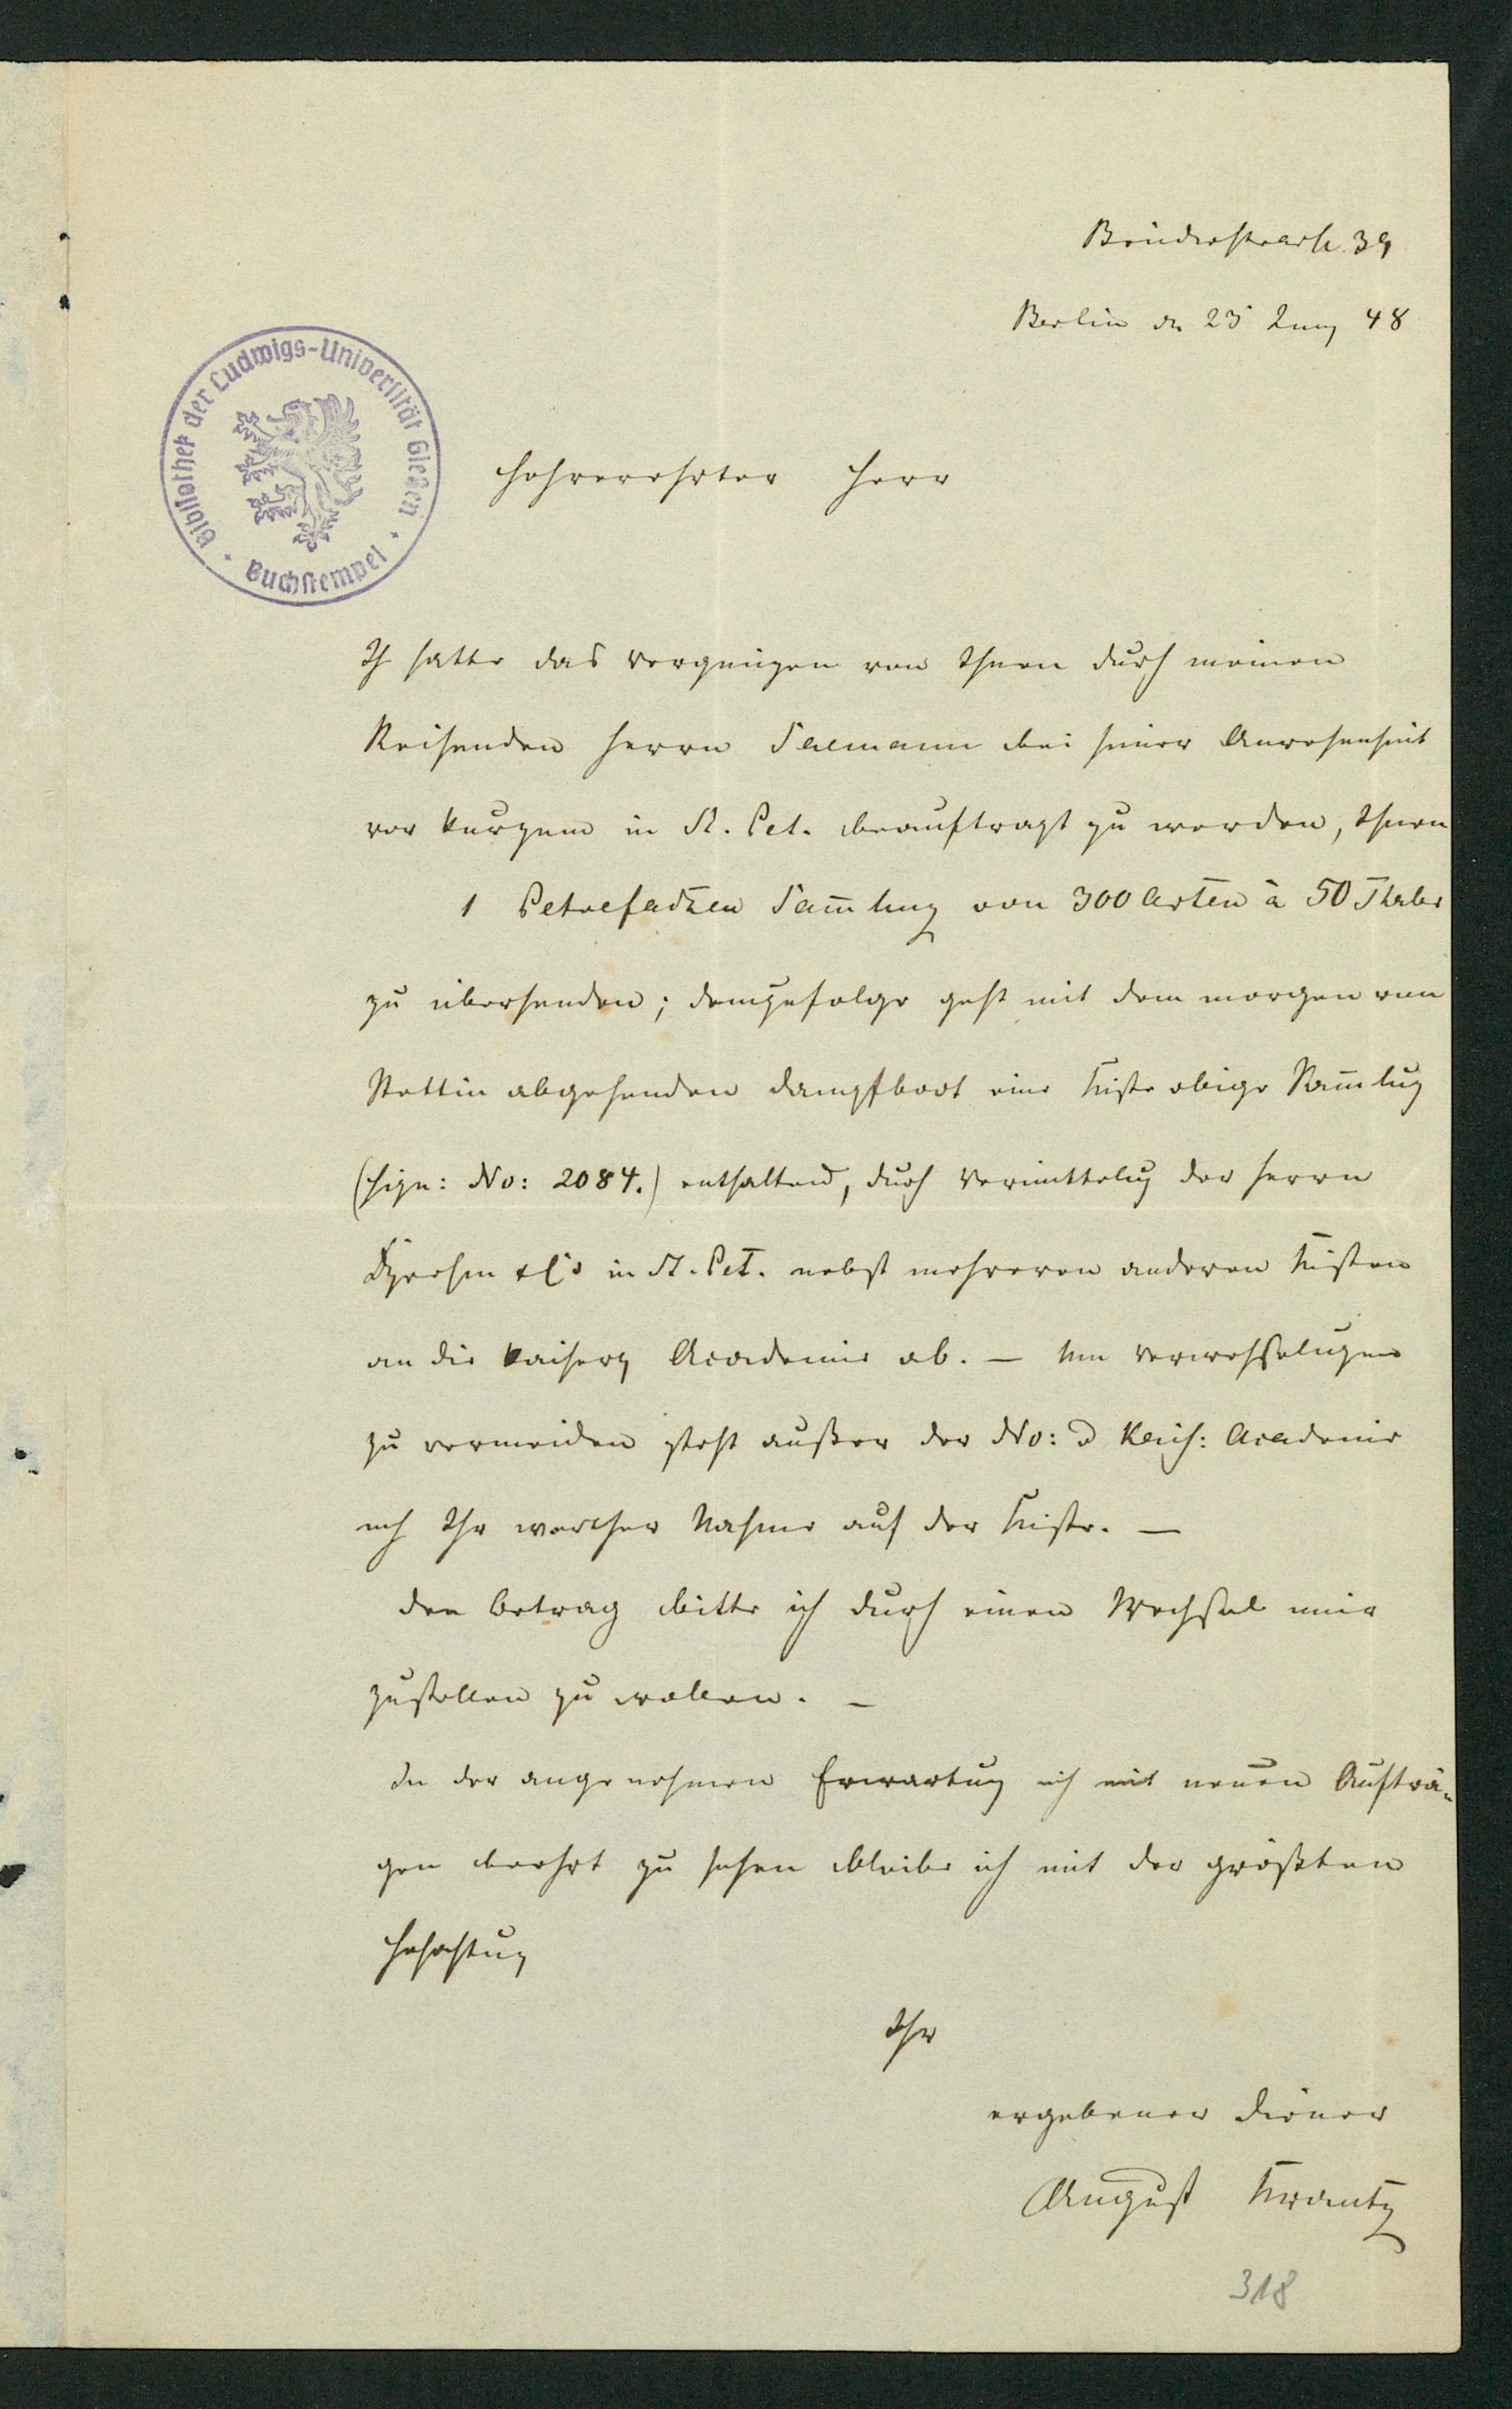 Brüderstraße 39
Berlin dn 23 Juny 48
Bibliothek der Ludwigs-Universität Gießen
Buchstempel
Hochverehrter Herr
Ich hatte das Vergnügen von Ihnen durch meinen
Reisenden Herrn Saemann bei seiner Anwesenheit
vor kurzem in St. Pet. beauftragt zu werden, Ihnen
1 Petrefacten Sam̅lung von 300 Arten à 50 Thaler
zu übersenden; demzufolge geht mit dem morgen von
Stettin abgehenden Dampfboot eine Kiste obige Sam̅lung
(sign: No: 2084.) enthaltend, durch Vermittelung der Herrn
& Co in St. Pet. nebst mehreren anderen Kisten
an die kaiserl Academie ab. — Um Verwechselungen
zu vermeiden steht außer der No: d Kais: Academie
noch Ihr werther Nahme auf der Kiste. —
Den Betrag bitte ich durch einen Wechsel mir
zustellen zu wollen. —
In der angenehmen Erwartung mich mit neuen Aufträ-
gen beehrt zu sehen bleibe ich mit der größten
Hochachtung
Ihr
ergebener Diener
August Krantz
318